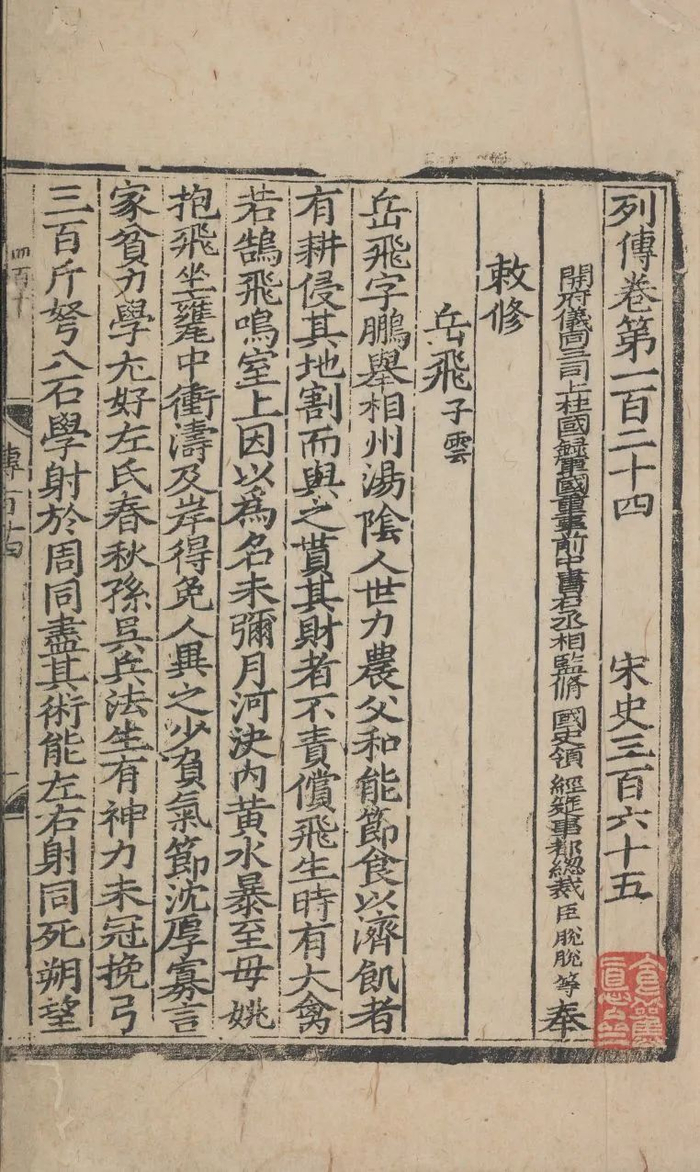 列傳卷第一百二十四 宋史三百六十五
開府儀同三司上柱國録軍國重事前中書右丞相監脩 國史領 經筵事都總裁臣脫脫等奉
敕修
岳飛 子雲
岳飛字鵬舉相州湯陰人世力農父和能節食以濟飢者
有耕侵其地割而與之貰其財者不責償飛生時有大禽
若鵠飛鳴室上因以爲名未彌月河決内黄水暴至毋姚
抱飛坐甕中衝濤及岸得免人異之少負氣節沈厚寡言
家貧力學尤好左氏春秋孫吳兵法生有神力未冠挽弓
三百斤弩八石學射於周同盡其術能左右射同死朔望